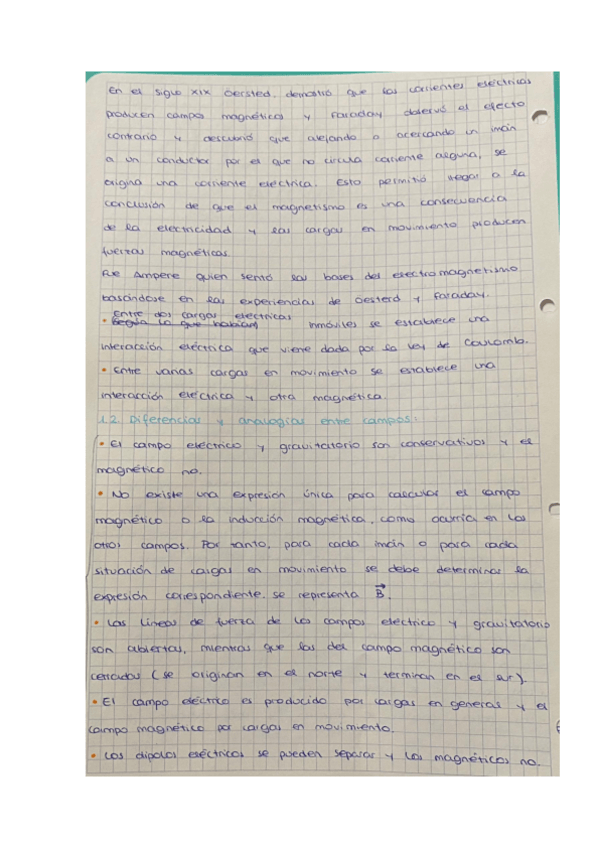 En el siglo XIX Oersted, demostró que las corrientes eléctricas
producen campos magnéticos y Faraday observó el efecto
contrario y descubrió que alejando o acercando un imán
a un conductor por el que no circula corriente alguna, se
origina una corriente eléctrica. Esto permitió llegar a la
conclusión de que el magnetismo es una consecuencia
de la electricidad y las cargas en movimiento producen
fuerzas magnéticas.
Fue Ampere quien sentó las bases del electromagnetismo
basándose en las experiencias de Oesterd y Faraday.
Entre dos cargas eléctricas
• inmóviles se establece una
interacción eléctrica que viene dada por la ley de Coulomb.
• Entre varias cargas en movimiento se establece una
interacción eléctrica y otra magnética.
1.2. Diferencias y analogías entre campos:
• El campo eléctrico y gravitatorio son conservativos y el
magnético no.
• No existe una expresión única para calcular el campo
magnético o la inducción magnética, como ocurría en los
otros campos. Por tanto, para cada imán o para cada
situación de cargas en movimiento se debe determinar la
expresión correspondiente. se representa B⃗.
• Las líneas de fuerza de los campos eléctrico y gravitatorio
son abiertas, mientras que las del campo magnético son
cerradas (se originan en el norte y terminan en el sur).
• El campo eléctrico es producido por cargas en general y el
campo magnético por cargas en movimiento.
• Los dipolos eléctricos se pueden separar y los magnéticos no.